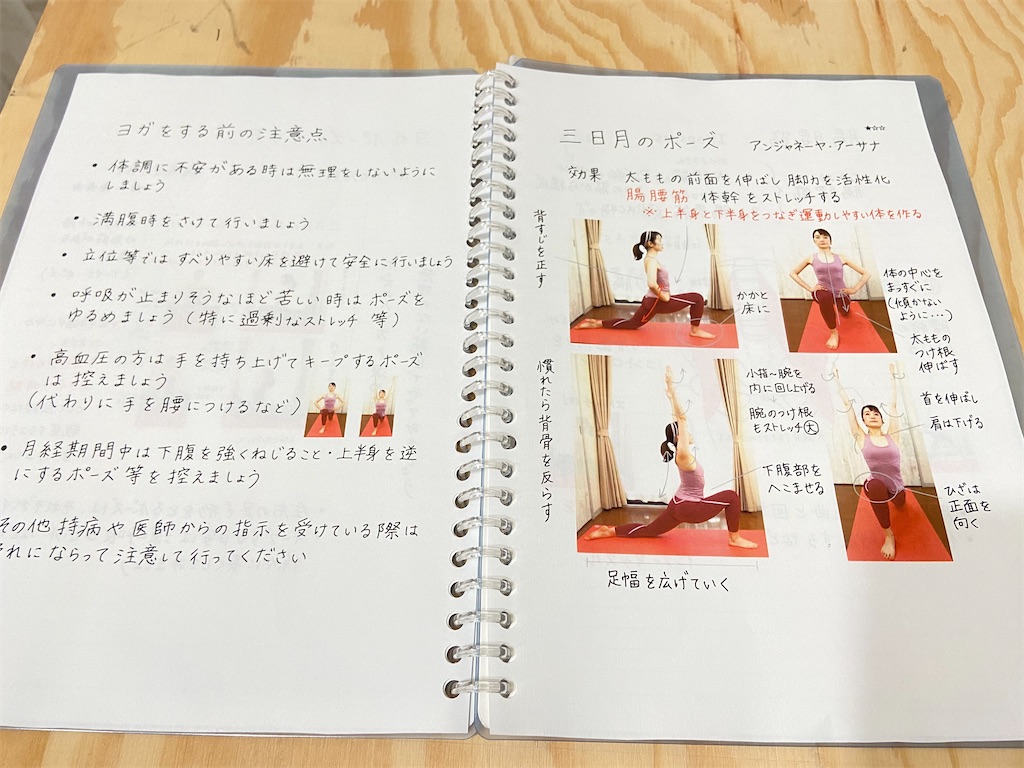 ヨガをする前の注意点
・体調に不安がある時は無理をしないように
しましょう
・満腹時をさけて行いましょう
・立位等ではすべりやすい床を避けて安全に行いましょう
・呼吸が止まりそうなほど苦しい時はポーズを
ゆるめましょう(特に過剰なストレッチ 等)
・高血圧の方は手を持ち上げてキープするポーズ
は控えましょう
(代わりに手を腰につけるなど)
・月経期間中は下腹を強くねじること・上半身を逆
にするポーズ等を控えましょう
その他 持病や医師からの指示を受けている際は
それにならって注意して行ってください
★☆☆
三日月のポーズ アンジャネーヤ・アーサナ
効果 太ももの前面を伸ばし脚力を活性化
腸腰筋 体幹をストレッチする
※上半身と下半身をつなぎ運動しやすい体を作る
背すじを正す
かかと
床に
体の中心を
まっすぐに
(傾かない
ように…)
太ももの
つけ根
伸ばす
慣れたら背骨を反らす
小指〜腕を
内に回し上げる
腕のつけ根
もストレッチ大
下腹部を
へこませる
首を伸ばし
肩は下げる
ひざは
正面を
向く
足幅を広げていく